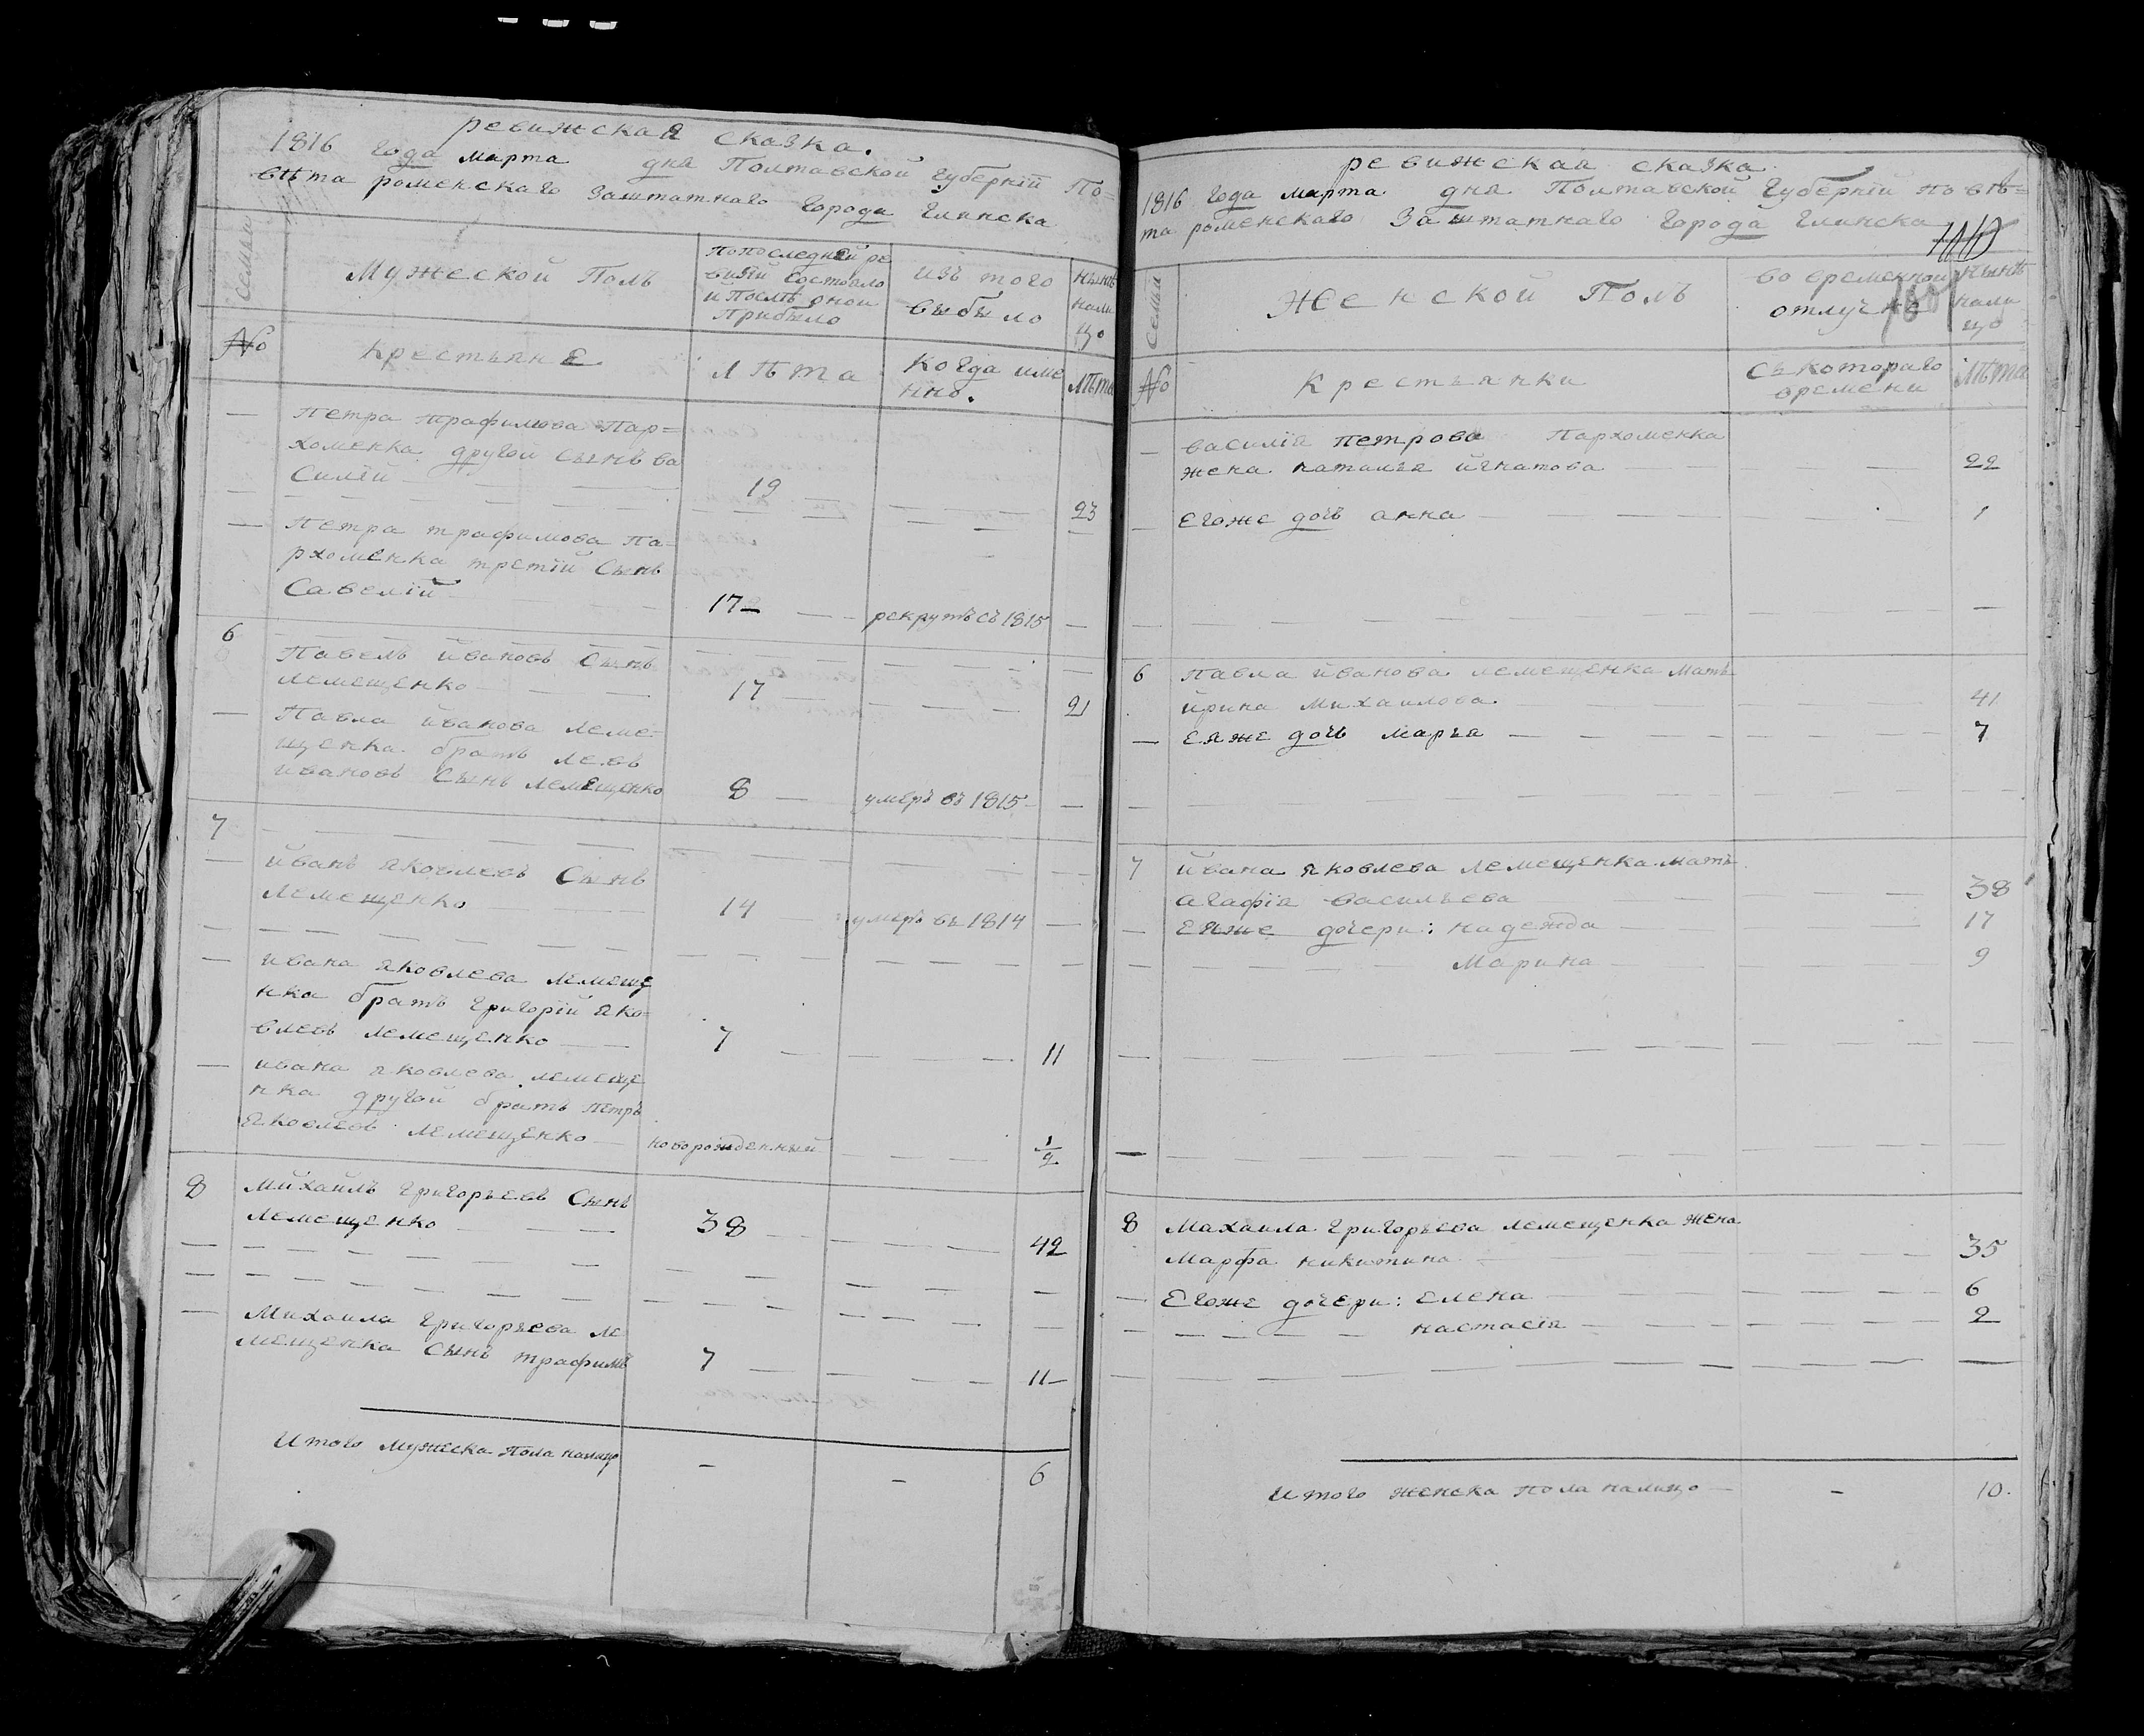 ревижская сказка.
1816 года марта дня Полтавской Губернїй По=
вѣта роменскаго Заштатнаго Города Глинска
семьи
Мужеской Полъ
По последней ре
визїй состояло
и Послѣ оной
Прибыло
изъ того
выбыло
нынѣ
нали
цо
№
крестьянE
лѣта
Когда име
нно.
лѣта
— Петра трафимова Пар=
хоменка другой Сынъ ва
Силїй — 19 — 23
— Петра трафимова Па=
рхоменка третїй Сынъ
Савелїй 17 — рекрутъ съ 1815 —
6
Павелъ йвановъ Сынъ
лемещенко — 17 — 21
— Павла йванова леме=
щенка братъ левъ
йвановъ Сынъ лемещенко 8 — умеръ въ 1815 —
7
— йванъ яковлевъ Сынъ
лемещенко 14 умеръ въ 1814 —
— ивана яковлева лемеще
нка братъ григорїй яко=
влевъ лемещенко — 7 — 11
— ивана яковлева лемеще
нка другой братъ петръ
яковлевъ лемещенко — новорожденный — 1/2
8 Мйхайлъ григорьевъ Сынъ
лемещенко — 38 — 42
— Михаила григорьева ле
мещенка Сынъ трафимъ 7 — 11
Итого мужеска Пола налицо - - 6
ревижская сказка
1816 года марта дня Полтавской Губернїй повѣ=
та роменскаго Заштатнаго Города Глинска
семьи
Женской Полъ
во временной
отлучке
нынѣ
нали
цо
№
Крестьянки
съ котораго
времени
лѣта
— василїя петрова Пархоменка
жена наталья йгнатова — 22
— Егоже дочь анна — 1
6 Павла йванова лемещенка мать
йрина михаилова — 41
— Еяже дочь марья — 7
7 йвана яковлева лемещенка мать
агафїя васильева — 38
— Еяже дочери: надежда — 17
— Марина — 9
8 Махаила григорьева лемещенка жена
марфа никитина — 35
— Егоже дочери: Елена — 6
— настасїя — 2
Итого женска пола налицо - 10.